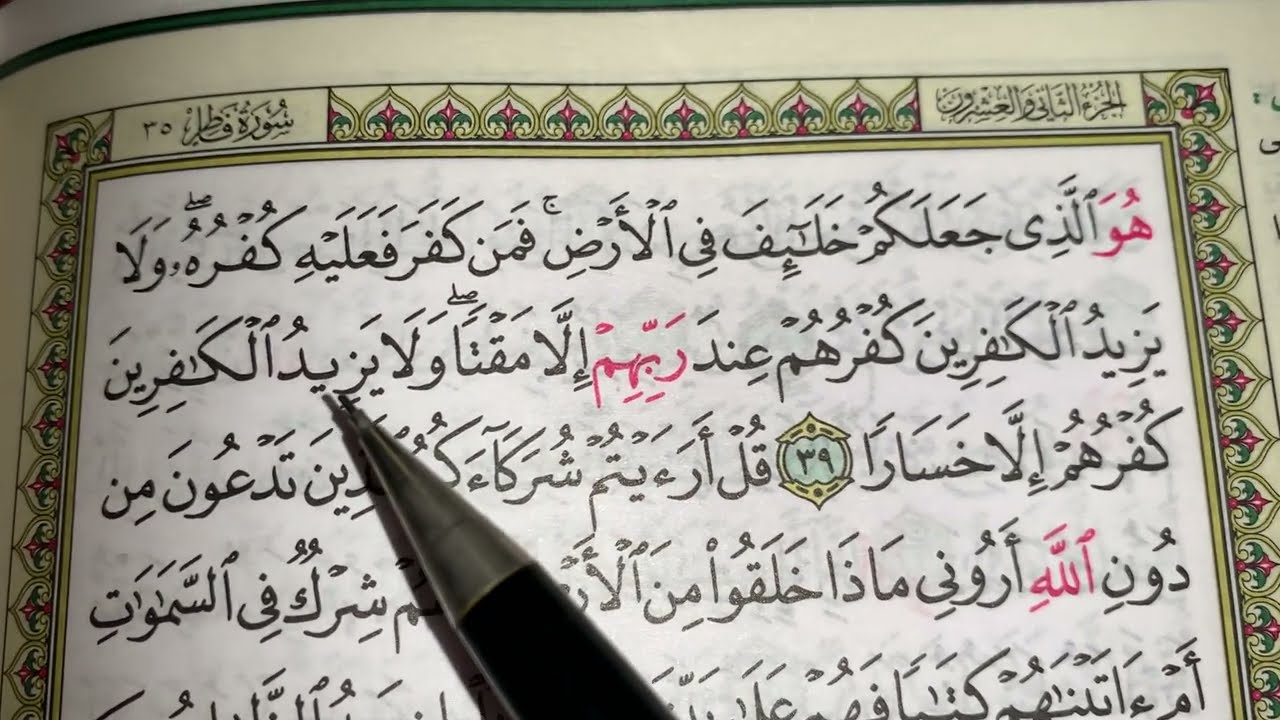 الجزء الثاني والعشرون
سورة فاطر ٣٥
هُوَ ٱلَّذِى جَعَلَكُمْ خَلَـٰٓئِفَ فِى ٱلْأَرْضِ ۚ فَمَن كَفَرَ فَعَلَيْهِ كُفْرُهُۥ ۖ وَلَا
يَزِيدُ ٱلْكَـٰفِرِينَ كُفْرُهُمْ عِندَ رَبِّهِمْ إِلَّا مَقْتًا ۖ وَلَا يَزِيدُ ٱلْكَـٰفِرِينَ
كُفْرُهُمْ إِلَّا خَسَارًا ٣٩ قُلْ أَرَءَيْتُمْ شُرَكَآءَ تَدْعُونَ مِن
دُونِ ٱللَّهِ أَرُونِى مَاذَا خَلَقُوا۟ مِنَ شِرْكٌ فِى ٱلسَّمَـٰوَٰتِ
أَمْ ءَاتَيْنَـٰهُمْ كِتَـٰبًا فَهُمْ